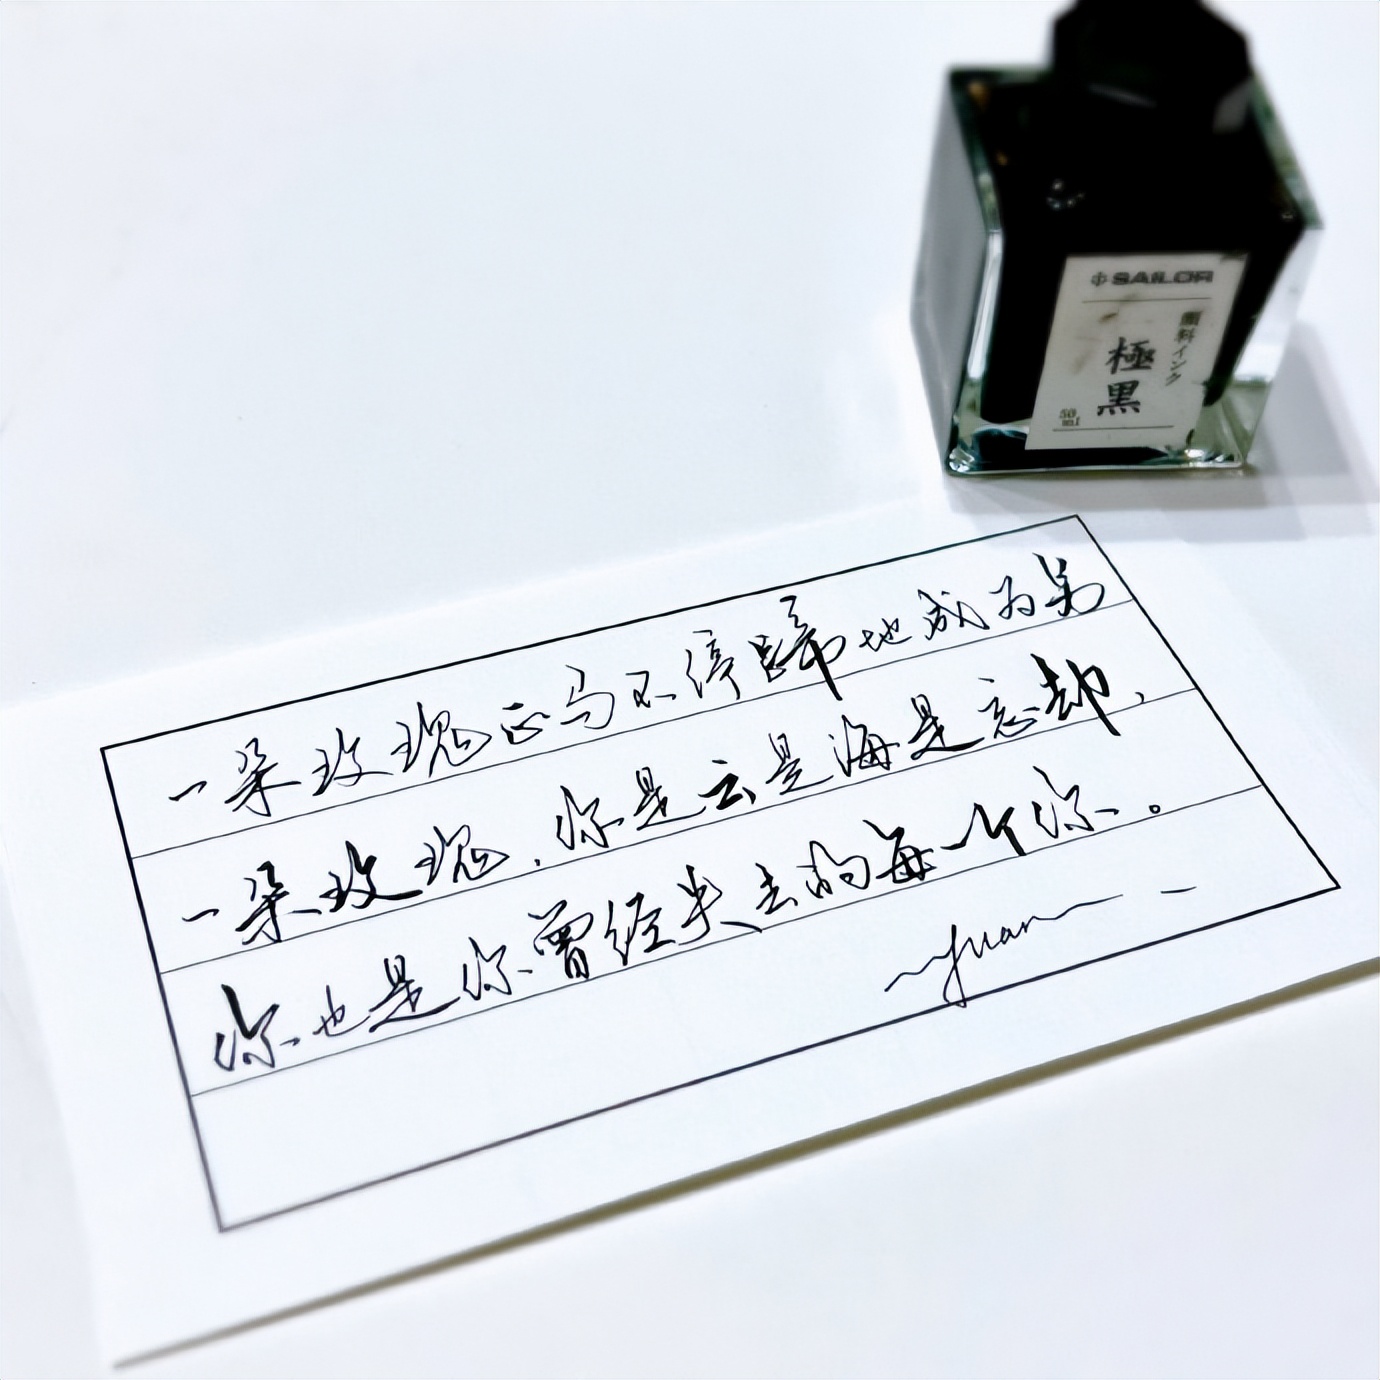 SAILOR
顔料インク
極黒
50
ml
一朵玫瑰正马不停蹄地成为另
一朵玫瑰，你是云是海是忘却，
你也是你曾经失去的每一个你。
yuan